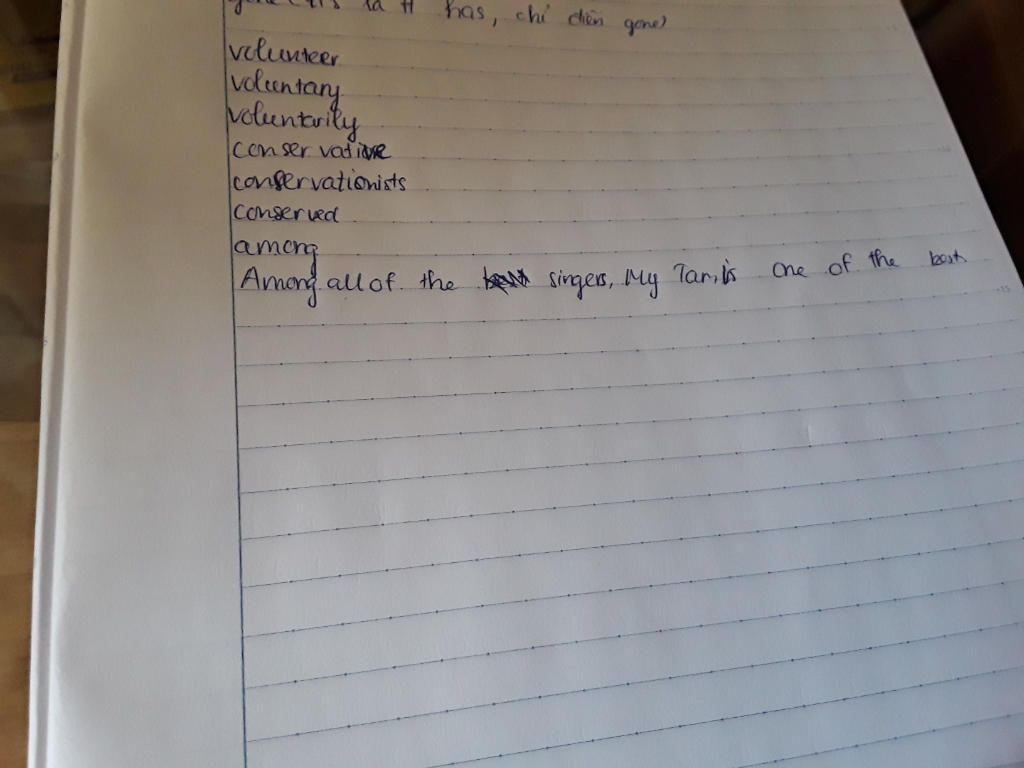 has, chỉ điền gone)
volunteer
voluntary
voluntarily
conservative
conservationists
conserved
among
Among all of the singers, My Tam is one of the best